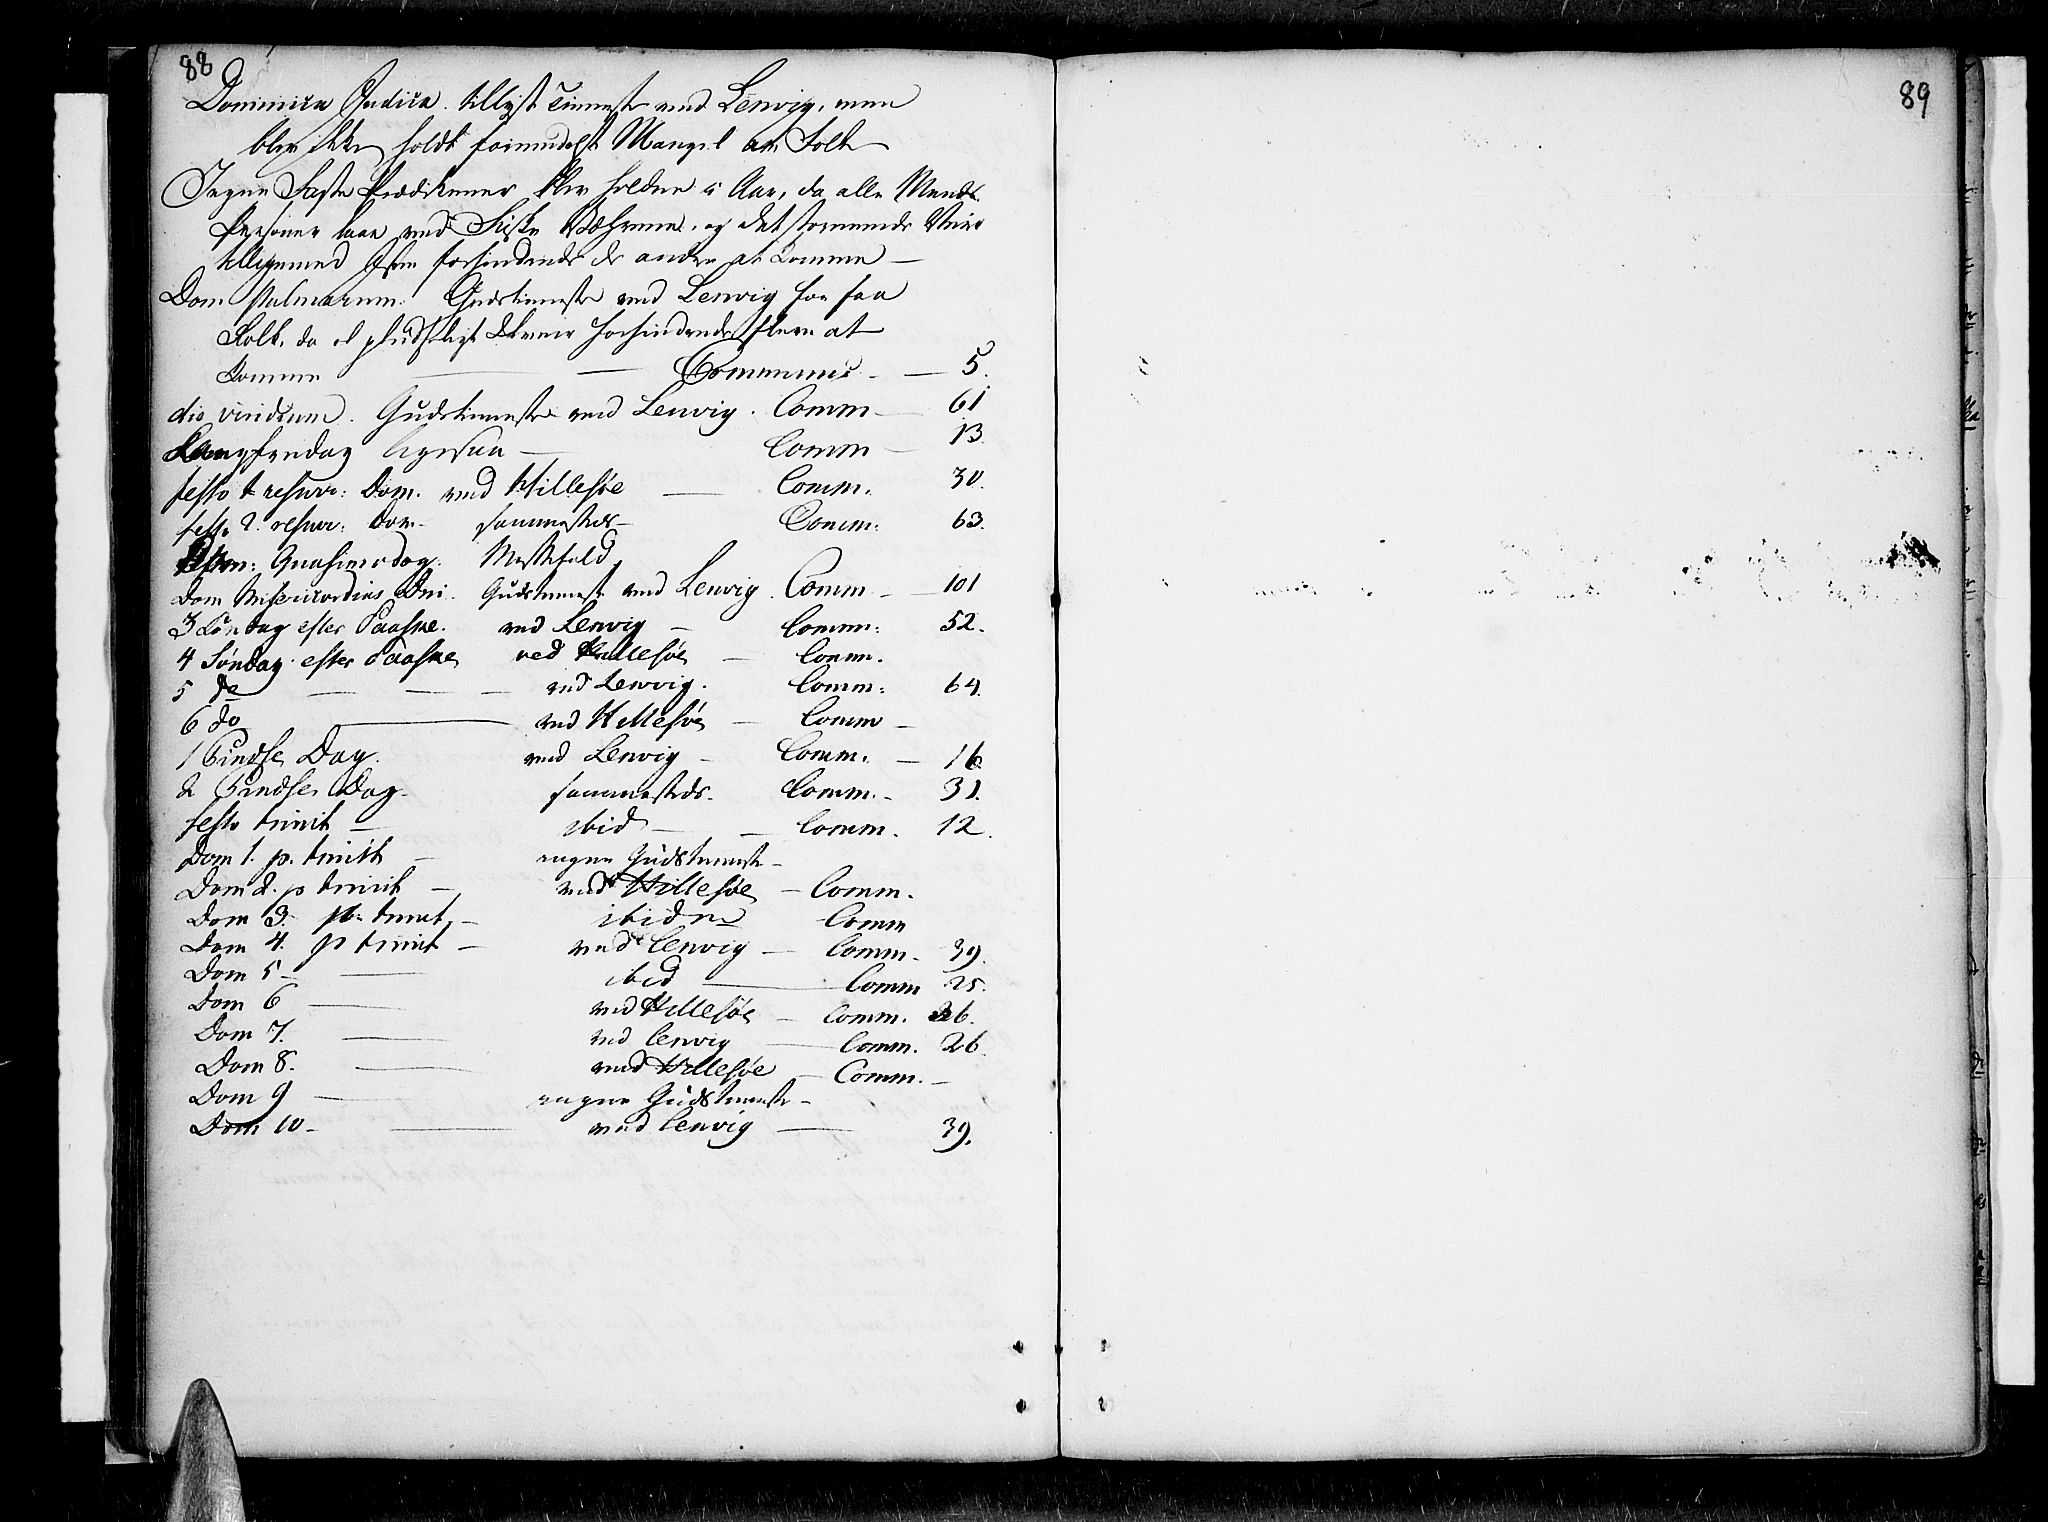 88
Dominica Judica. tillyst Tienneste ved Lenvig, men
blev ikke holdt formedelst Mangel av Folk
Ingen Faste Prædikener blev holdne i Aar, da alle Mands
Personer laae ved Fiske Værene, og det stormende Veir
tilligemed Isen forhindrede de andre at komme
Dom Palmarum. Gudstienneste ved Lenvig for faa
Folk, da et pludseligt Uveir forhindrede flere at
komme Communic. 5.
die viridium. Gudstienneste ved Lenvig. Comm 61
Langfredag ligesaa Comm 13.
festo 1 resurr: Dom. ved Hillesøe Comm. 30.
festo 2. resurr: Dom. sammesteds Comm: 63.
Dom: Quasimodog. Messefald
Dom Misericordias Dni. Gudstieneste ved Lenvig. Comm 101
3 Søndag efter Paaske. ved Lenvig Comm: 52.
4 Søndag efter Paaske ved Hillesøe Comm.
5 do ved Lenvig. Comm: 64.
6 do ved Hillesøe Comm
1 Pindse Dag. ved Lenvig Comm. 16
2 Pindse Dag. sammesteds. Comm. 31.
festo trinit ibid Comm. 12.
Dom 1. p. trinit ingen Gudstieneste
Dom 2. p trinit ved Hillesøe Comm.
Dom 3. p. trinit ibidem Comm
Dom 4. p trinit ved Lenvig Comm. 39.
Dom 5 ibid Comm 25.
Dom 6 ved Hillesøe Comm. 26.
Dom 7. ved Lenvig Comm. 26.
Dom 8. ved Hillesøe Comm.
Dom 9 ingen Gudstieneste
Dom 10 ved Lenvig 39.
89